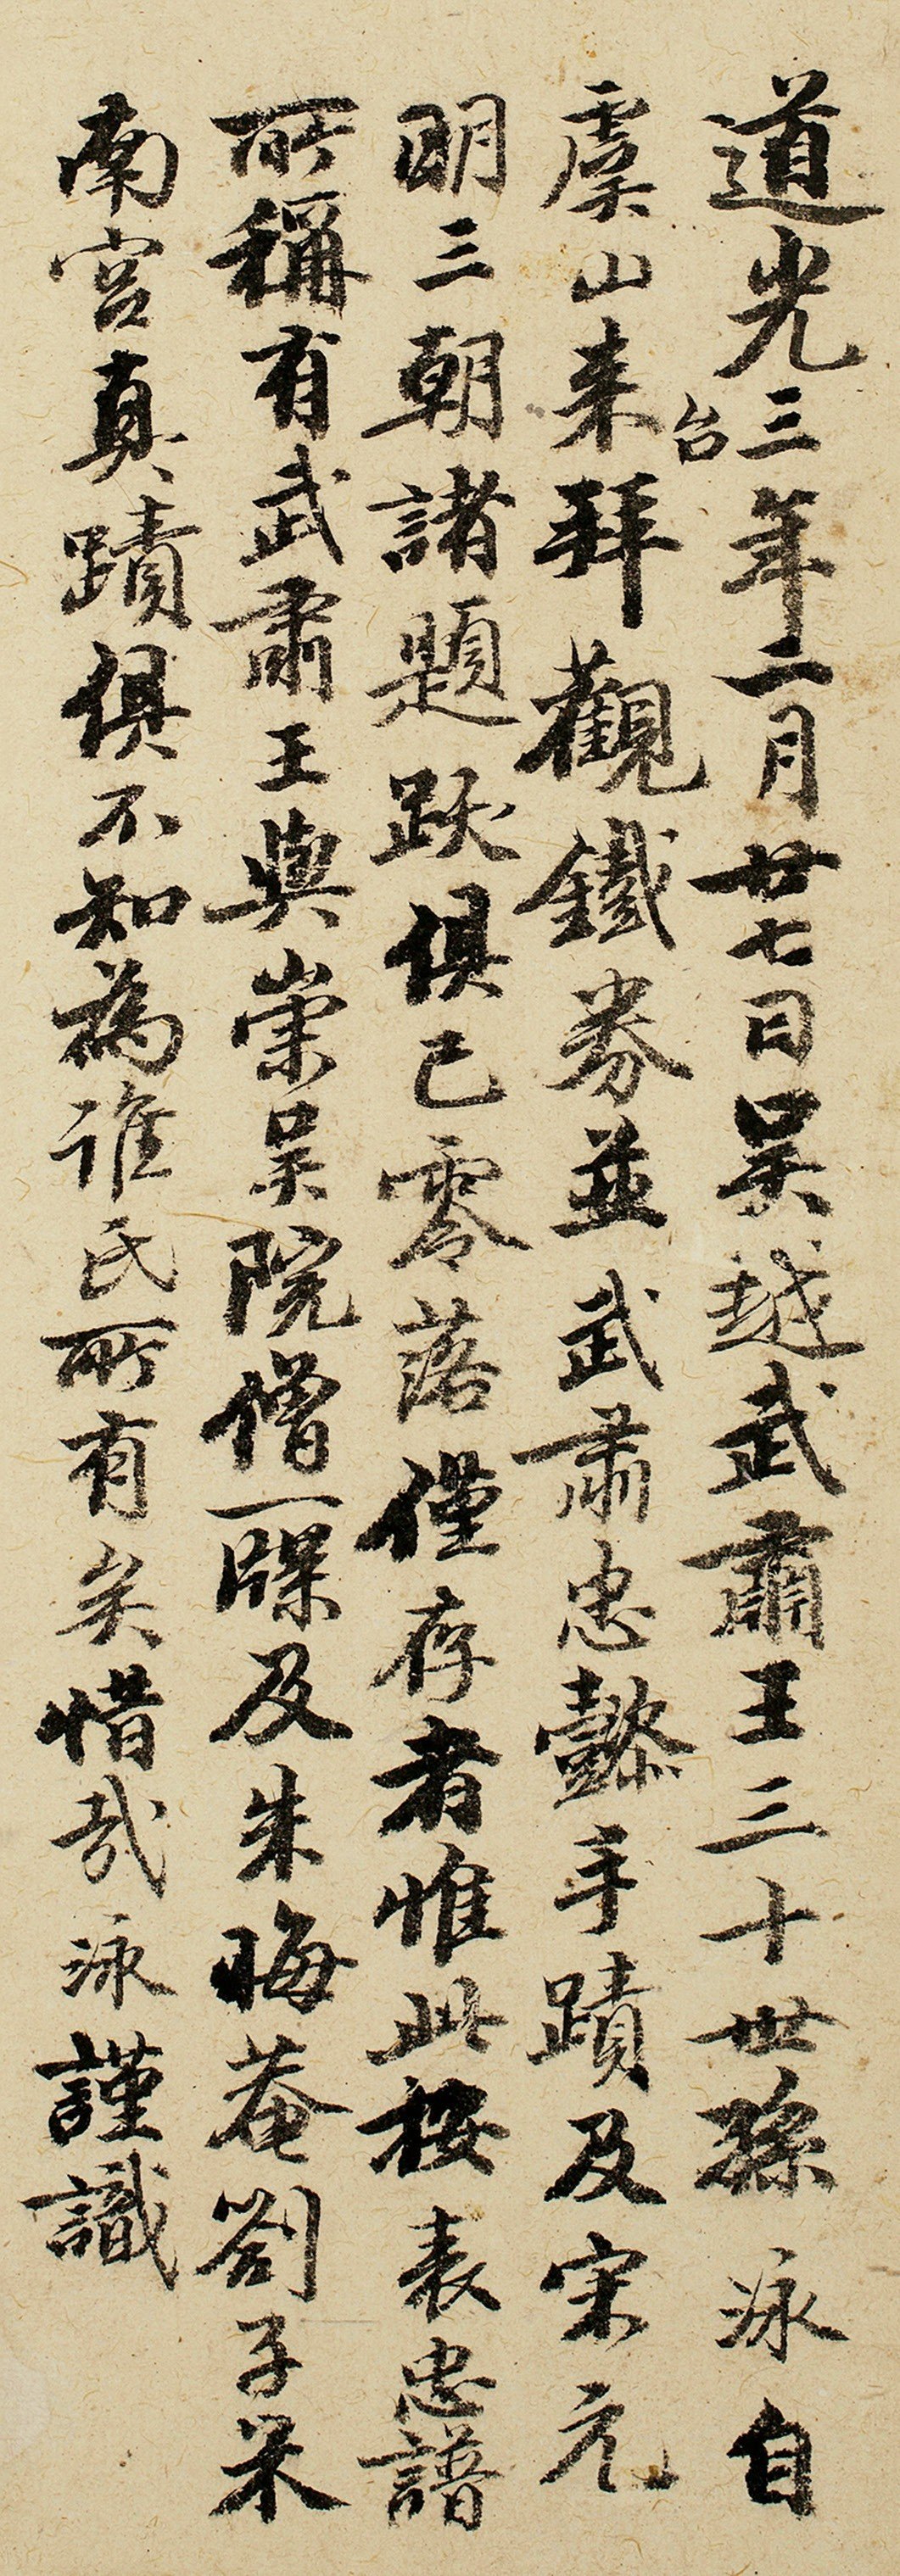 道光三年二月廿七日吳越武肅王三十世孫泳自
虞山来台拜觀鐵券並武肅忠懿手蹟及宋元
明三朝諸題跋俱已零落僅存者惟此按表忠譜
所稱有武肅王與崇吳院僧一牒及朱晦菴劉子米
南宮真蹟俱不知為誰氏所有矣惜哉泳謹識